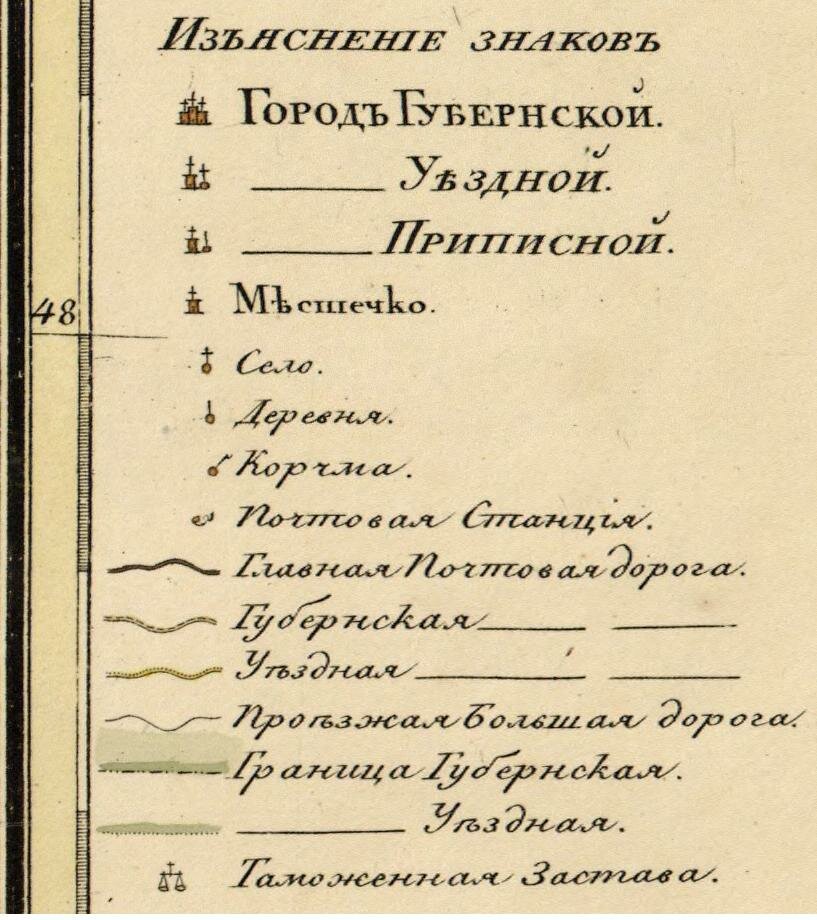 Изъясненіе знаковъ
Городъ Губернской.
Уѣздной.
Приписной.
Мѣстечко.
48
Село.
Деревня.
Корчма.
Почтовая Станція.
Главная Почтовая дорога.
Губернская
Уѣздная
Проѣзжая Большая дорога.
Граница Губернская.
Уѣздная.
Таможенная Застава.